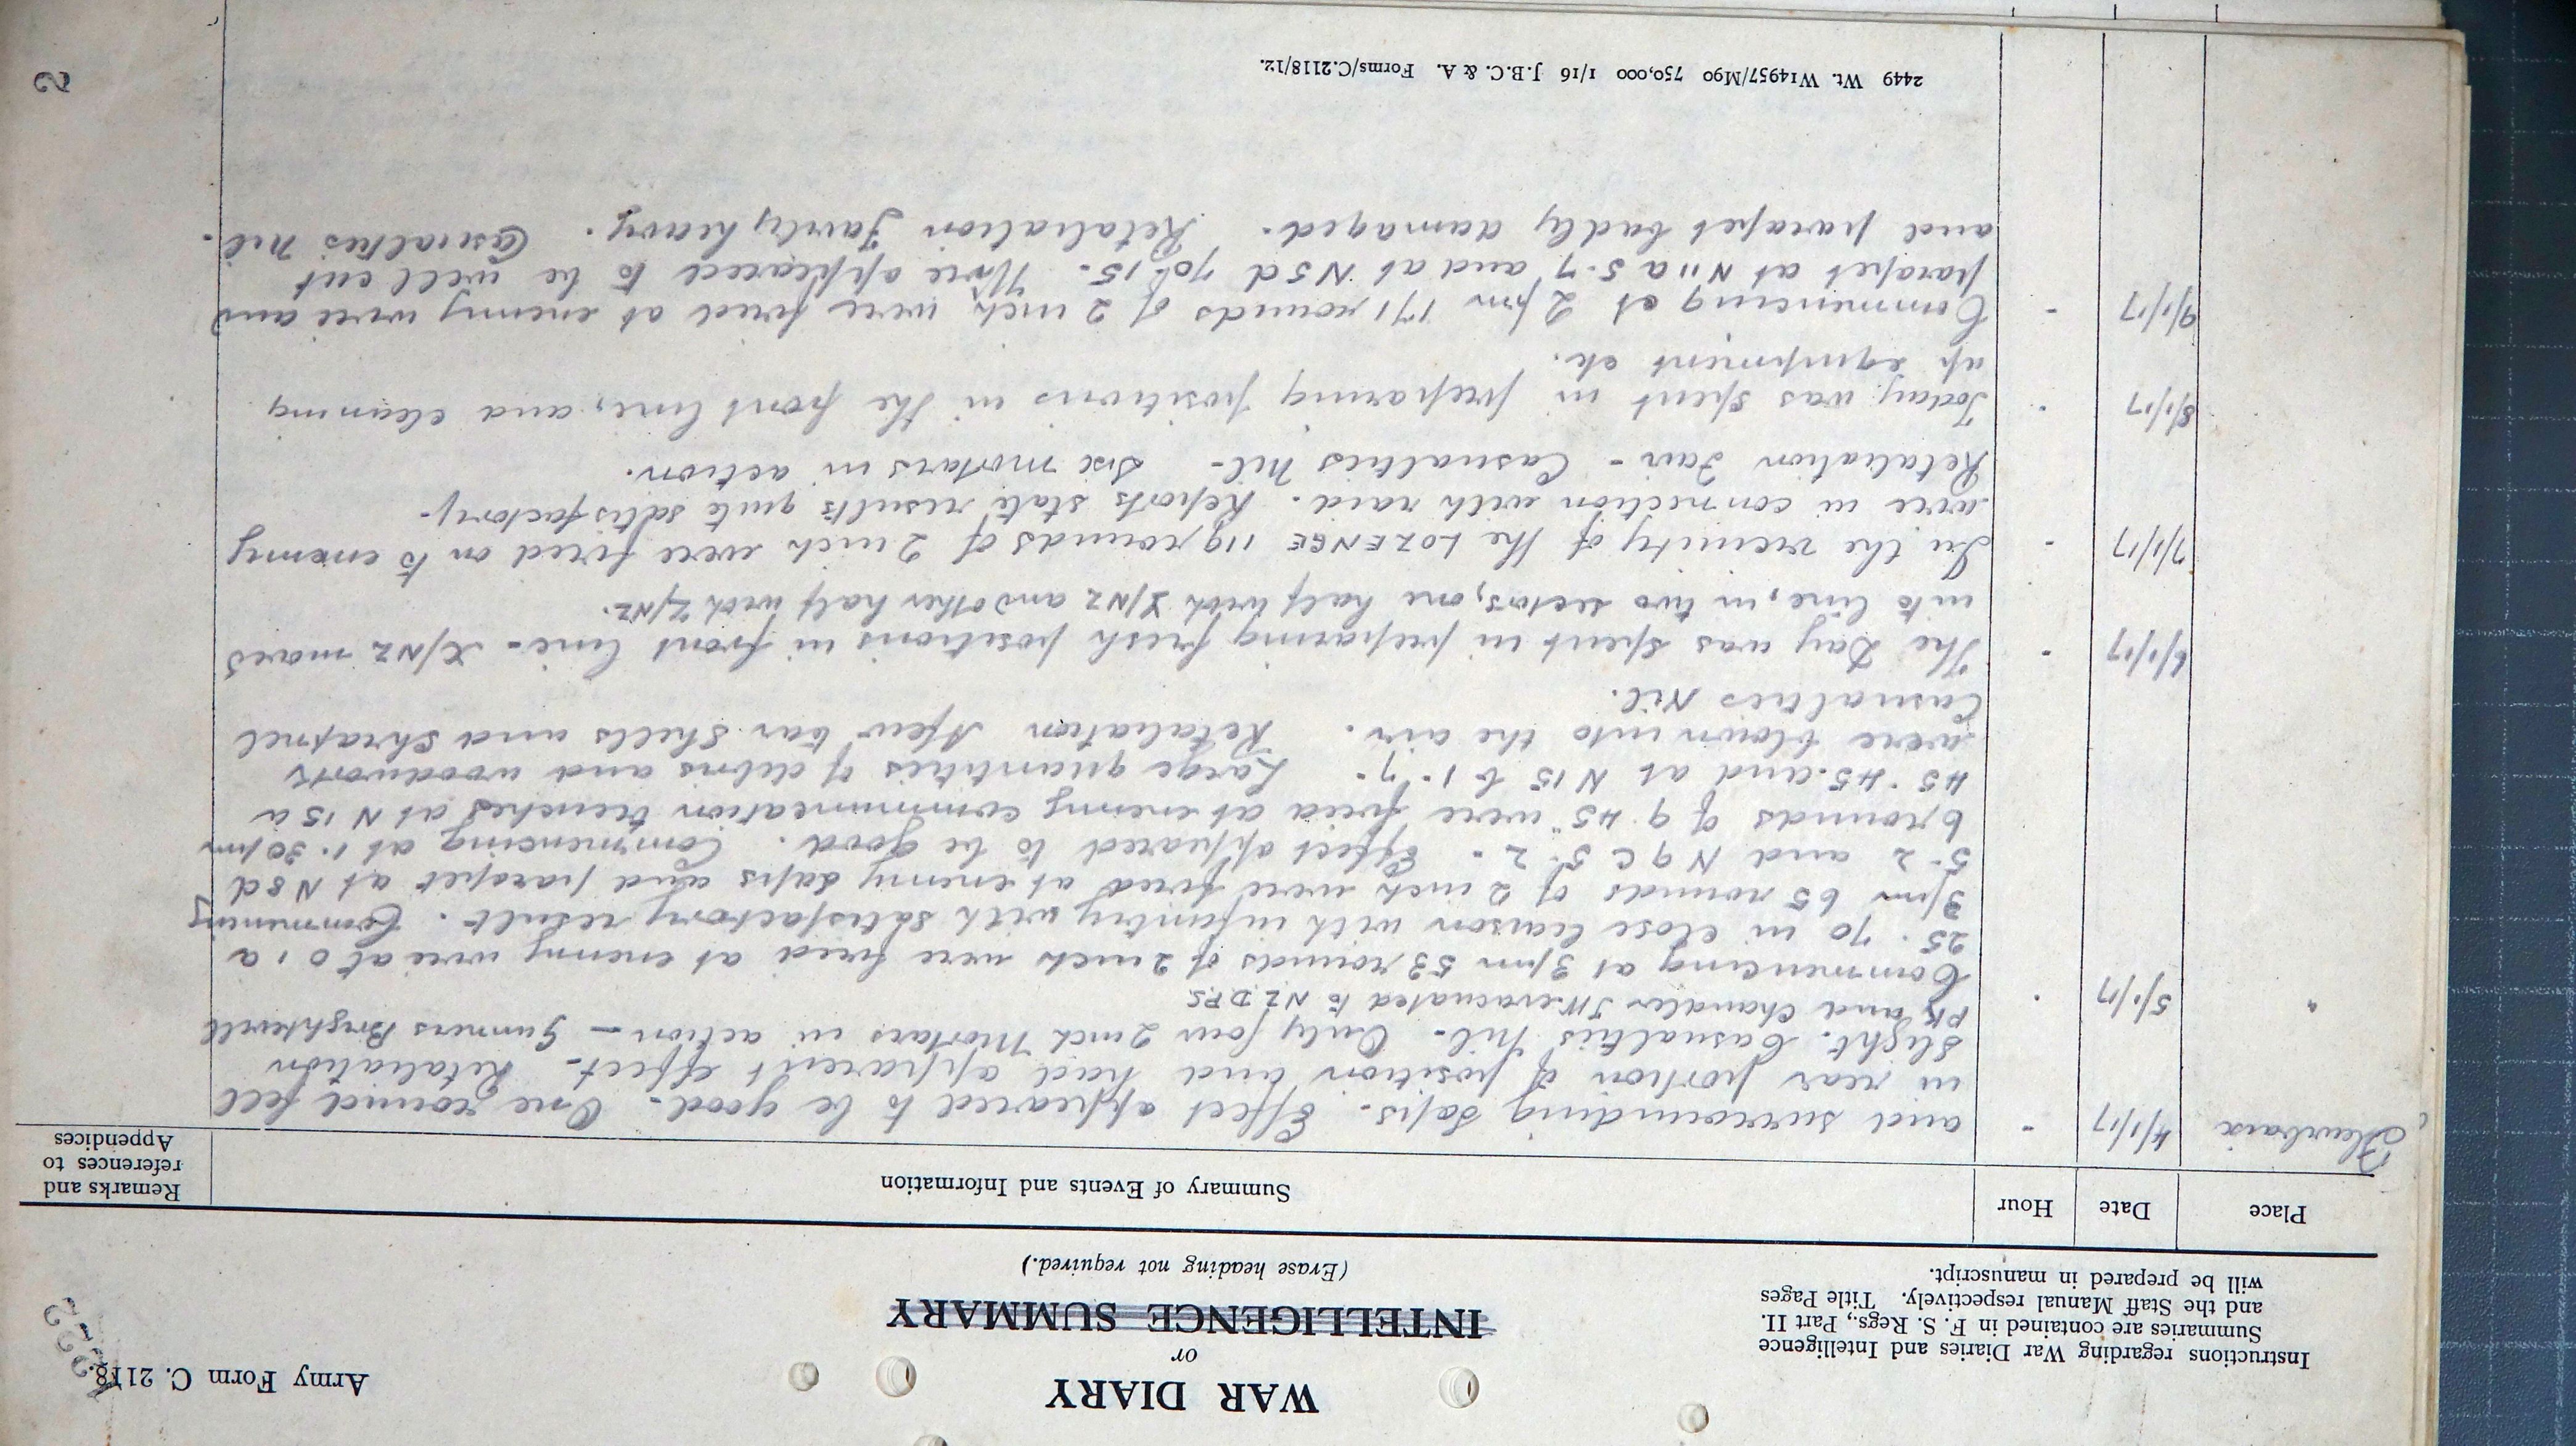 Army Form C. 2118.
WAR DIARY
or
INTELLIGENCE SUMMARY
(Erase heading not required.)
Instructions regarding War Diaries and Intelligence
Summaries are contained in F. S. Regs., Part II.
and the Staff Manual respectively. Title Pages
will be prepared in manuscript.
Place Date Hour Summary of Events and Information Remarks and references to Appendices
Fleurbaix 4/1/17 - and surrounding saps. Effect appeared to be good. One round fell
in rear portion of position and had apparent effect. Retaliation
slight. Casualties Nil. Only four 2 inch Mortars in action — Gunners Brightwell
PK and Chandler JW evacuated to NZ.DRS
" 5/1/17 - Commencing at 3pm 53 rounds of 2 inch were fired at enemy wire at O 1 a
25.70 in close liaison with infantry with satisfactory result. Commencing
3pm 65 rounds of 2 inch were fired at enemy saps and parapet at N8d
5.2 and N9C 5.2 - Effect appeared to be good. Commencing at 1.30pm
6 rounds of 9.45" were fired at enemy communication trenches at N15a
45.45. and at N15 b 1.7. Large quantities of debris and woodwork
were blown into the air. Retaliation A few 4.2 shells and shrapnel
Casualties Nil.
6/1/17 - The Day was spent in preparing fresh positions in front line - X/NZ moved
into line, in two sectors, one half with Y/NZ and other half with Z/NZ.
7/1/17 - In the vicinity of the LOZENGE 119 rounds of 2 inch were fired on to enemy
wire in connection with raid. Reports state results quite satisfactory.
Retaliation Fair - Casualties Nil - Six mortars in action.
8/1/17 - Today was spent in preparing positions in the front line, and cleaning
up equipment etc.
9/1/17 - Commencing at 2pm 171 rounds of 2 inch were fired at enemy wire and
parapet at N11a 5.7 and at N5d 70.15. Wire appeared to be well cut
and parapet badly damaged. Retaliation Fairly heavy. Casualties Nil.
2449 Wt. W14957/M90 750,000 1/16 J.B.C. & A. Forms/C.2118/12.
2